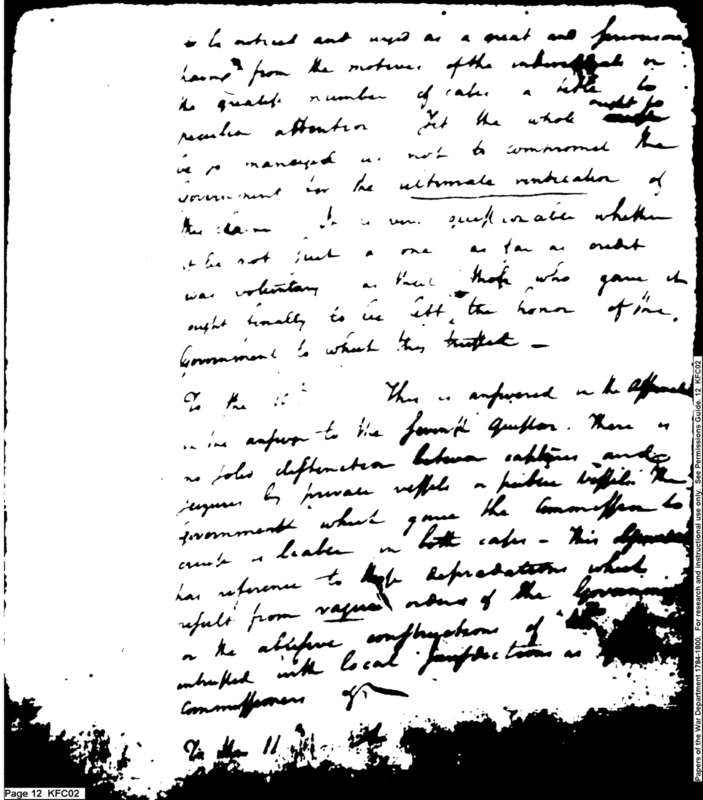 to be noticed and urged as a great and serious one
having from the motives of the individuals or
the greatest number of cases a title to
peculiar attention Yet the whole ought to
be so managed as not to commit the
Government for the ultimate vindication of
the claim It is very questionable whether
it be not such a one as far as credit
was voluntary as that those who gave it
ought finally to be left the honor of the
Government to which they trusted —
To the 10 This is answered in the
in the answer to the seventh question. There is
no solid distinction between captures and
seizures by private vessels or public vessels The
Government which gave the Commission to
cruise is liable in both cases – This
has reference to those depredations which
result from vague orders of the Government
or the abusive constructions of
intrusted with local jurisdictions as
Commissioners &
To the 11th
Page 12 KFC02
Papers of the War Department 1784-1800. For research and instructional use only. See Permissions Guide. 12 KFC02